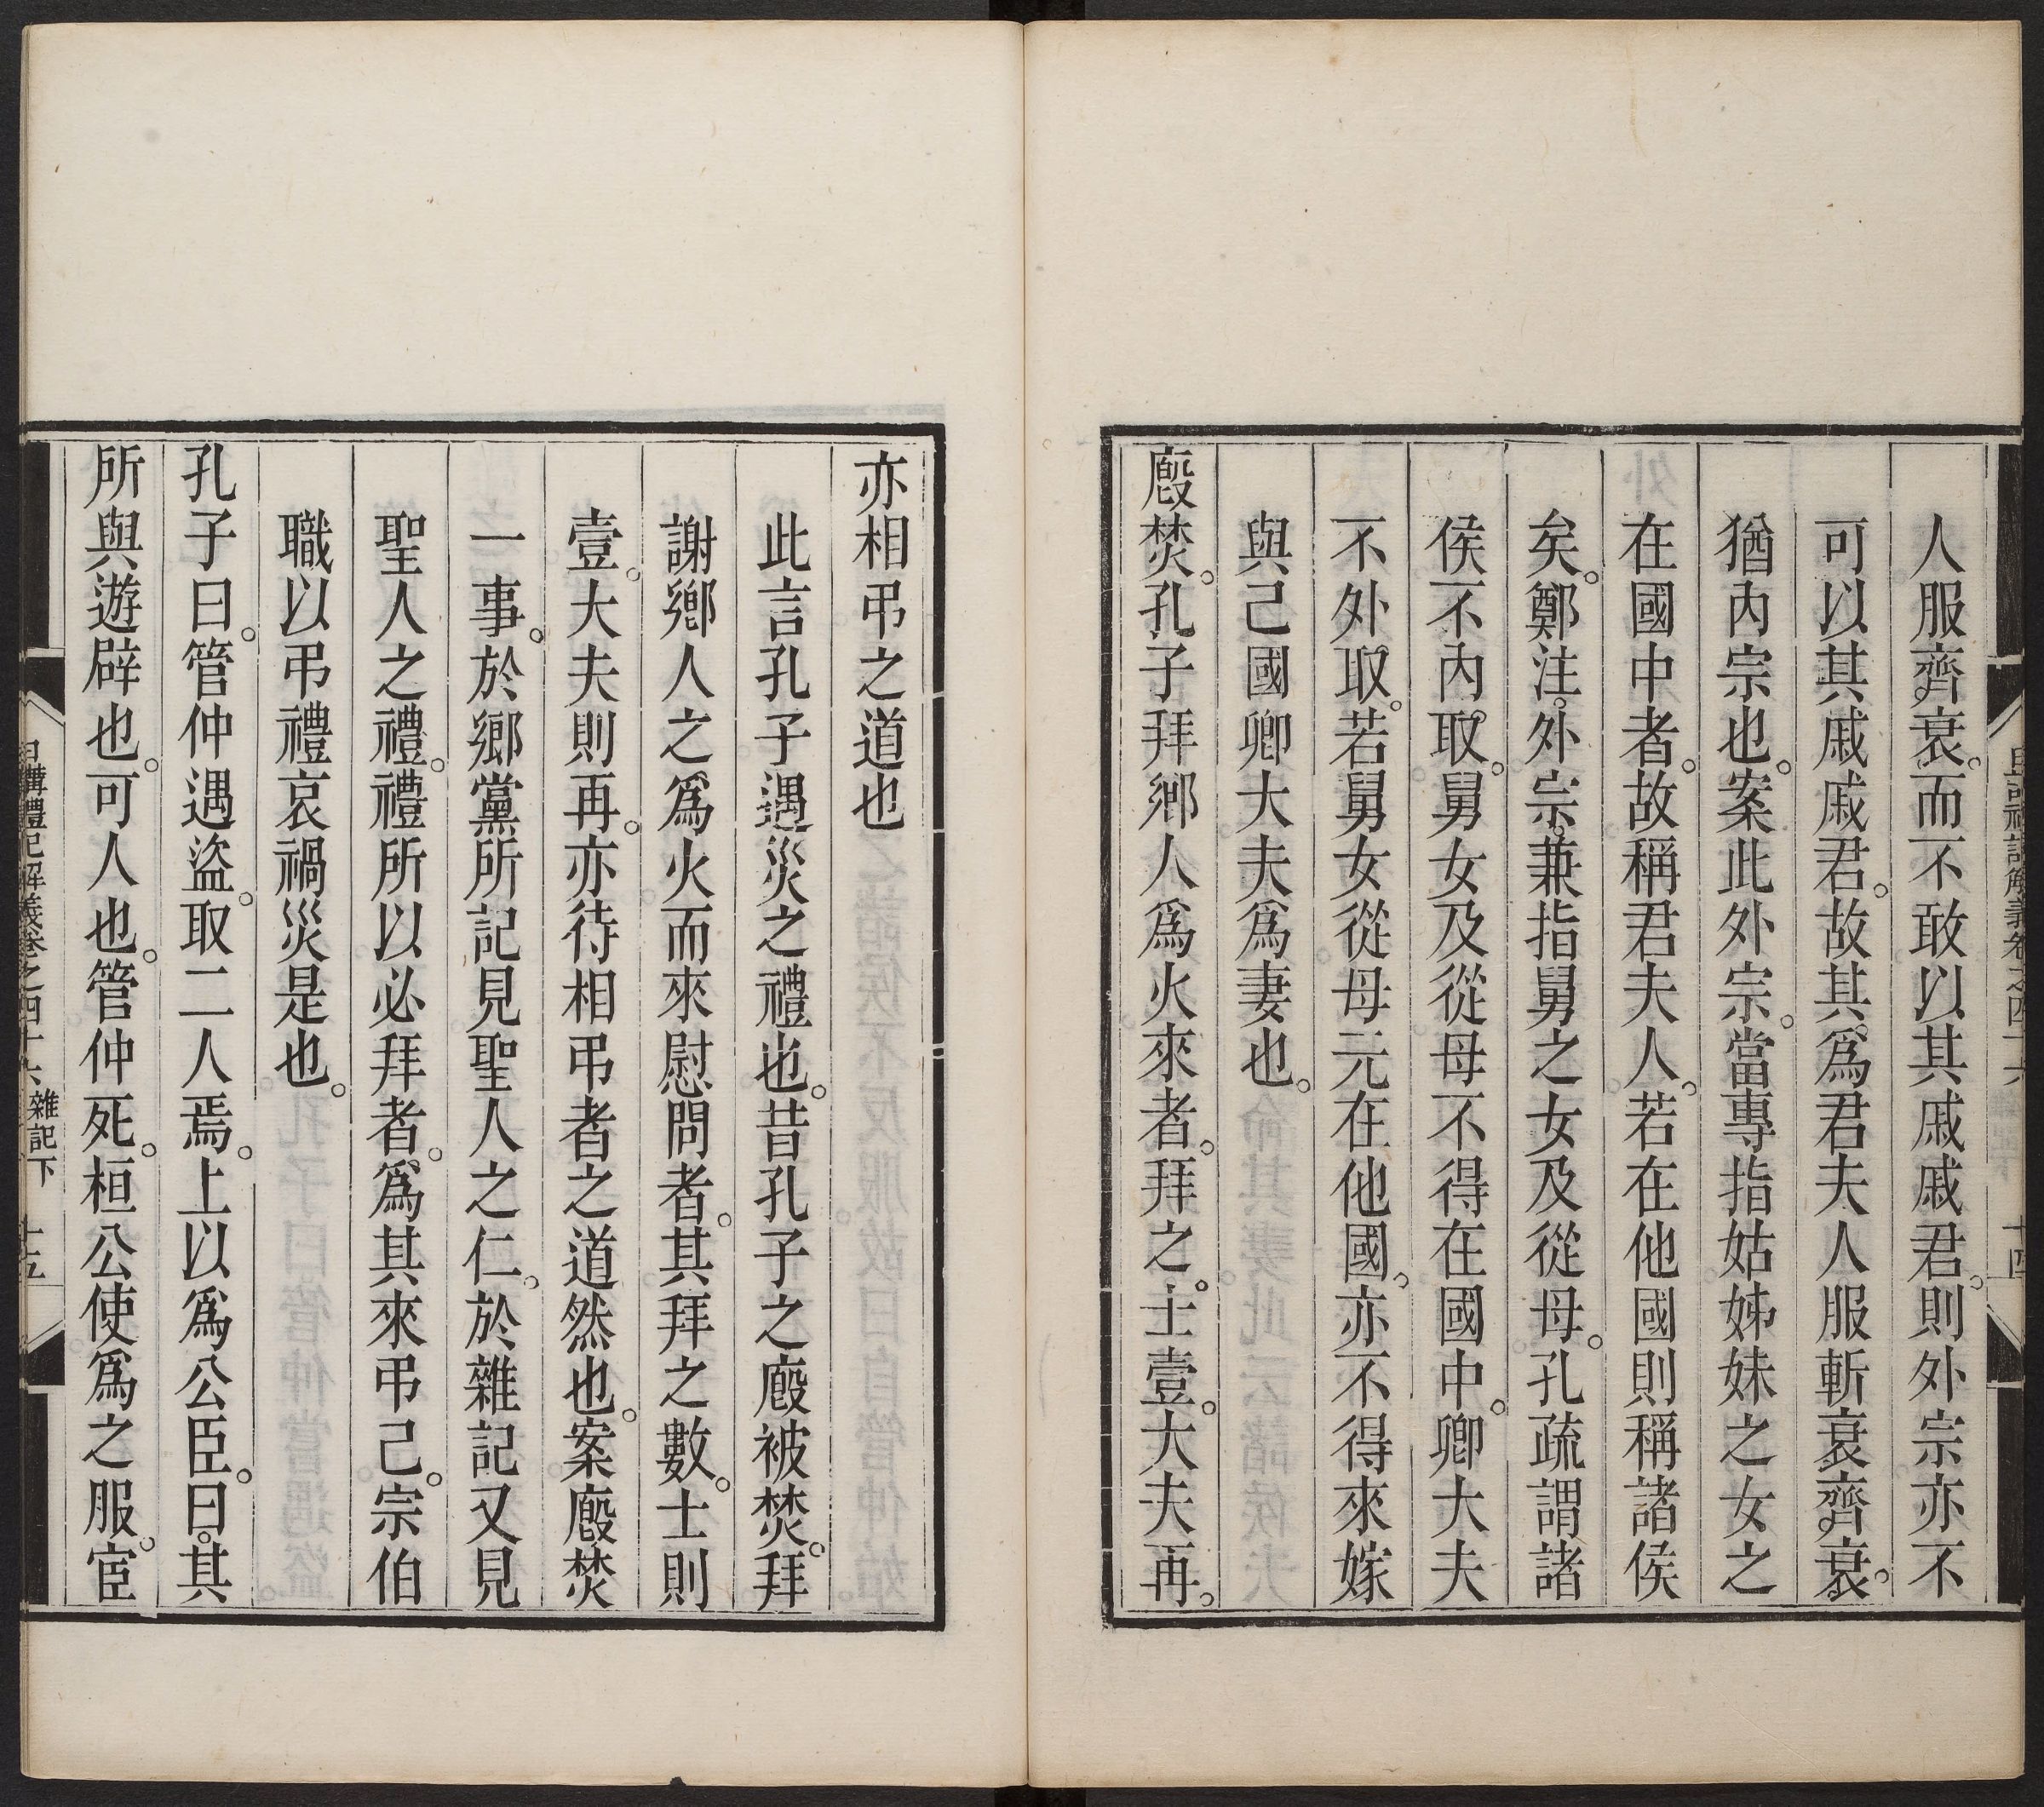 人服齊衰。而不敢以其戚戚君。則外宗亦不
可以其戚戚君。故其爲君夫人服斬衰齊衰。
猶內宗也。案此外宗。當專指姑姊妹之女之
在國中者。故稱君夫人。若在他國則稱諸侯
矣。鄭注。外宗。兼指舅之女及從母。孔疏謂諸
侯不內取。舅女及從母不得在國中。卿大夫
不外取。若舅女從母元在他國。亦不得來嫁
與己國卿大夫爲妻也。
廏焚。孔子拜鄉人爲火來者。拜之。士壹。大夫再。
日講禮記解義卷之四十六
十四
亦相弔之道也
此言孔子遇災之禮也。昔孔子之廏被焚。拜
謝鄉人之爲火而來慰問者。其拜之數。士則
壹。大夫則再。亦待相弔者之道然也。案廏焚
一事。於鄉黨所記見聖人之仁。於雜記又見
聖人之禮。禮所以必拜者。爲其來弔己。宗伯
職以弔禮哀禍災是也。
孔子曰。管仲遇盜。取二人焉。上以爲公臣。曰。其
所與遊辟也。可人也。管仲死。桓公使爲之服。宦
日講禮記解義卷之四十六 雜記下
十五